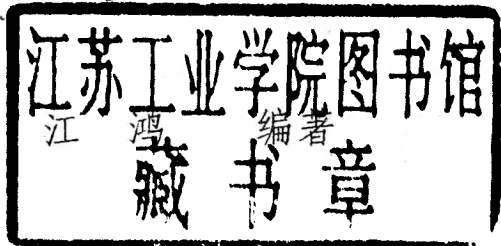 江苏工业学院图书馆
江鸿 编著
藏书章